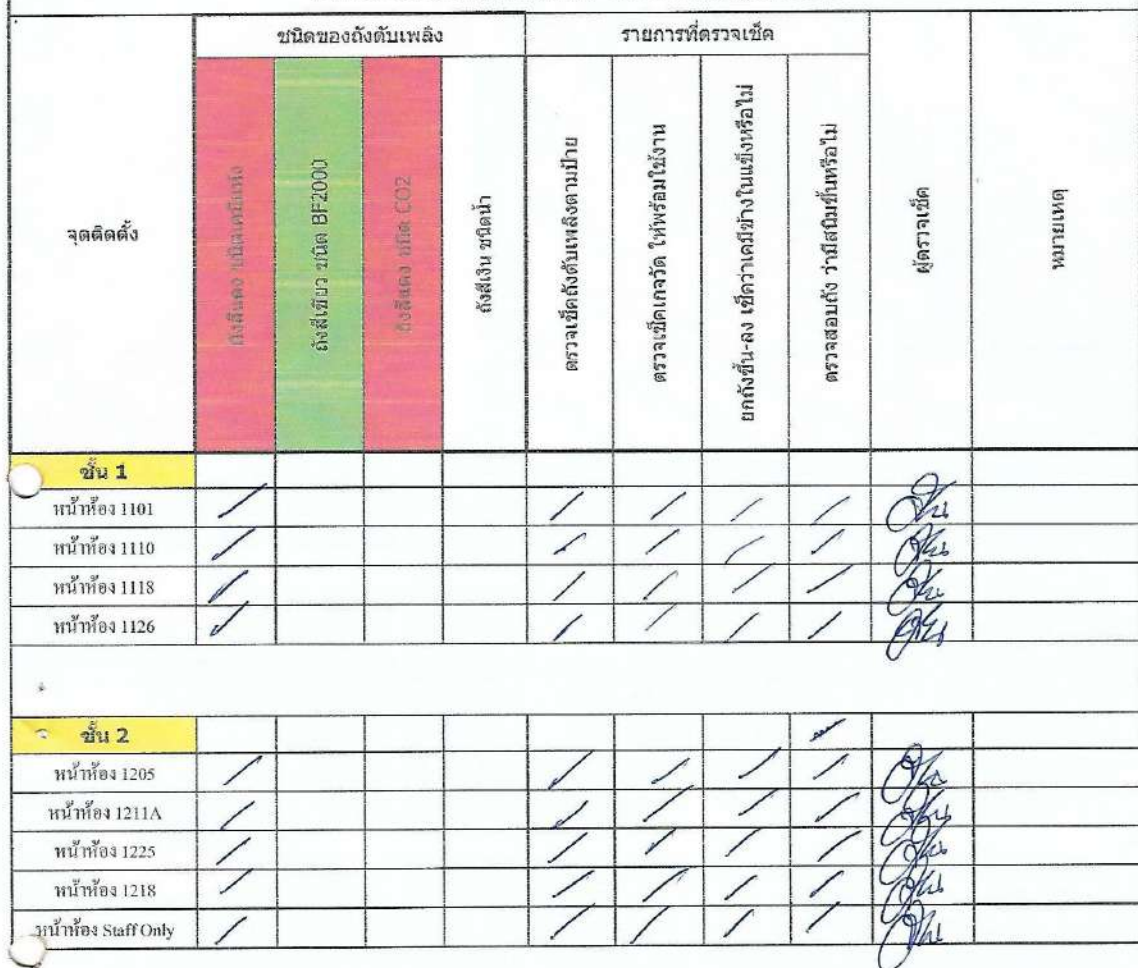 ชนิดของถังดับเพลิง
รายการที่ตรวจเช็ค
จุดติดตั้ง
ถังสีแดง ชนิดเคมีแห้ง
ถังสีเขียว ชนิด BF2000
ถังสีแดง ชนิด CO2
ถังสีเงิน ชนิดน้ำ
ตรวจเช็คถังดับเพลิงตามป้าย
ตรวจเช็คเกจวัด ให้พร้อมใช้งาน
ยกถังขึ้น-ลง เช็คว่าเคมีข้างในแข็งหรือไม่
ตรวจสอบถัง ว่ามีสนิมขึ้นหรือไม่
ผู้ตรวจเช็ค
หมายเหตุ
ชั้น 1
หน้าห้อง 1101
หน้าห้อง 1110
หน้าห้อง 1118
หน้าห้อง 1126
ชั้น 2
หน้าห้อง 1205
หน้าห้อง 1211A
หน้าห้อง 1225
หน้าห้อง 1218
หน้าห้อง Staff Only